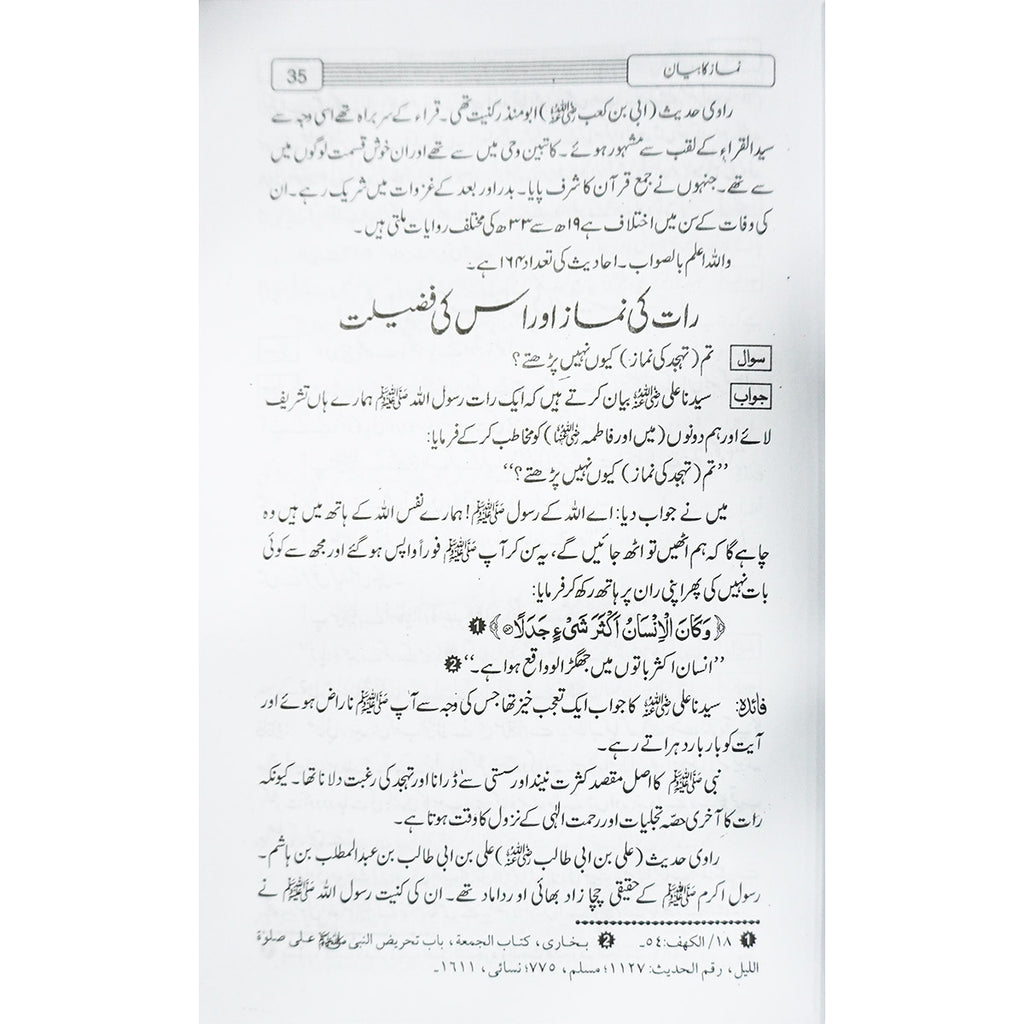 نماز کا بیان
35
راویٔ حدیث (ابی بن کعب رضی اللہ عنہ) ابومنذر کنیت تھی۔ قراء کے سربراہ تھے اسی وجہ سے
سید القراء کے لقب سے مشہور ہوئے۔ کاتبین وحی میں سے تھے اور ان خوش قسمت لوگوں میں
سے تھے۔ جنہوں نے جمع قرآن کا شرف پایا۔ بدر اور بعد کے غزوات میں شریک رہے۔ ان
کی وفات کے سن میں اختلاف ہے ۱۹ھ سے ۳۳ھ کی مختلف روایات ملتی ہیں۔
واللہ اعلم بالصواب۔ احادیث کی تعداد ۱۶۴ ہے۔
رات کی نماز اور اس کی فضیلت
سوال تم (تہجد کی نماز) کیوں نہیں پڑھتے؟
جواب سیدنا علی رضی اللہ عنہ بیان کرتے ہیں کہ ایک رات رسول اللہ ﷺ ہمارے ہاں تشریف
لائے اور ہم دونوں (میں اور فاطمہ رضی اللہ عنہا) کو مخاطب کر کے فرمایا:
’’تم (تہجد کی نماز) کیوں نہیں پڑھتے؟‘‘
میں نے جواب دیا: اے اللہ کے رسول ﷺ! ہمارے نفس اللہ کے ہاتھ میں ہیں وہ
چاہے گا کہ ہم اٹھیں تو اٹھ جائیں گے، یہ سن کر آپ ﷺ فوراً واپس ہو گئے اور مجھ سے کوئی
بات نہیں کی پھر اپنی ران پر ہاتھ رکھ کر فرمایا:
﴿وَكَانَ الْاِنْسَانُ اَكْثَرَ شَیْءٍ جَدَلًا﴾ ❶
’’انسان اکثر باتوں میں جھگڑالو واقع ہوا ہے۔‘‘ ❷
فائدہ: سیدنا علی رضی اللہ عنہ کا جواب ایک تعجب خیز تھا جس کی وجہ سے آپ ﷺ ناراض ہوئے اور
آیت کو بار بار دہراتے رہے۔
نبی ﷺ کا اصل مقصد کثرت نیند اور سستی سے ڈرانا اور تہجد کی رغبت دلانا تھا۔ کیونکہ
رات کا آخری حصہ تجلیات اور رحمت الٰہی کے نزول کا وقت ہوتا ہے۔
راوی حدیث (علی بن ابی طالب رضی اللہ عنہ) علی بن ابی طالب بن عبدالمطلب بن ہاشم۔
رسول اکرم ﷺ کے حقیقی چچا زاد بھائی اور داماد تھے۔ ان کی کنیت رسول اللہ ﷺ نے
❶ ۱۸/ الکھف: ٥٤۔ ❷ بخاری، کتاب الجمعة، باب تحریض النبی ﷺ علی صلوٰة
اللیل، رقم الحدیث: ۱۱۲۷؛ مسلم، ۷۷۵؛ نسائی، ۱۶۱۱۔